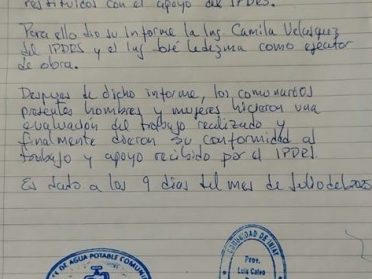 restituidos con el apoyo del IPDRS.
Para ello dio su informe la Ing. Camila Velasquez
del IPDRS y el Ing José Ledezma como ejecutor
de obra.
Despues de dicho informe, los comunarios
presentes hombres y mujeres hicieron una
evaluación del trabajo realizado y
finalmente dieron su conformidad al
trabajo y apoyo recibido por el IPDRS.
Es dado a los 9 dias del mes de Julio del 2025
DE AGUA POTABLE COMUN
COMUNIDAD DE
Prov.
Luis Calvo